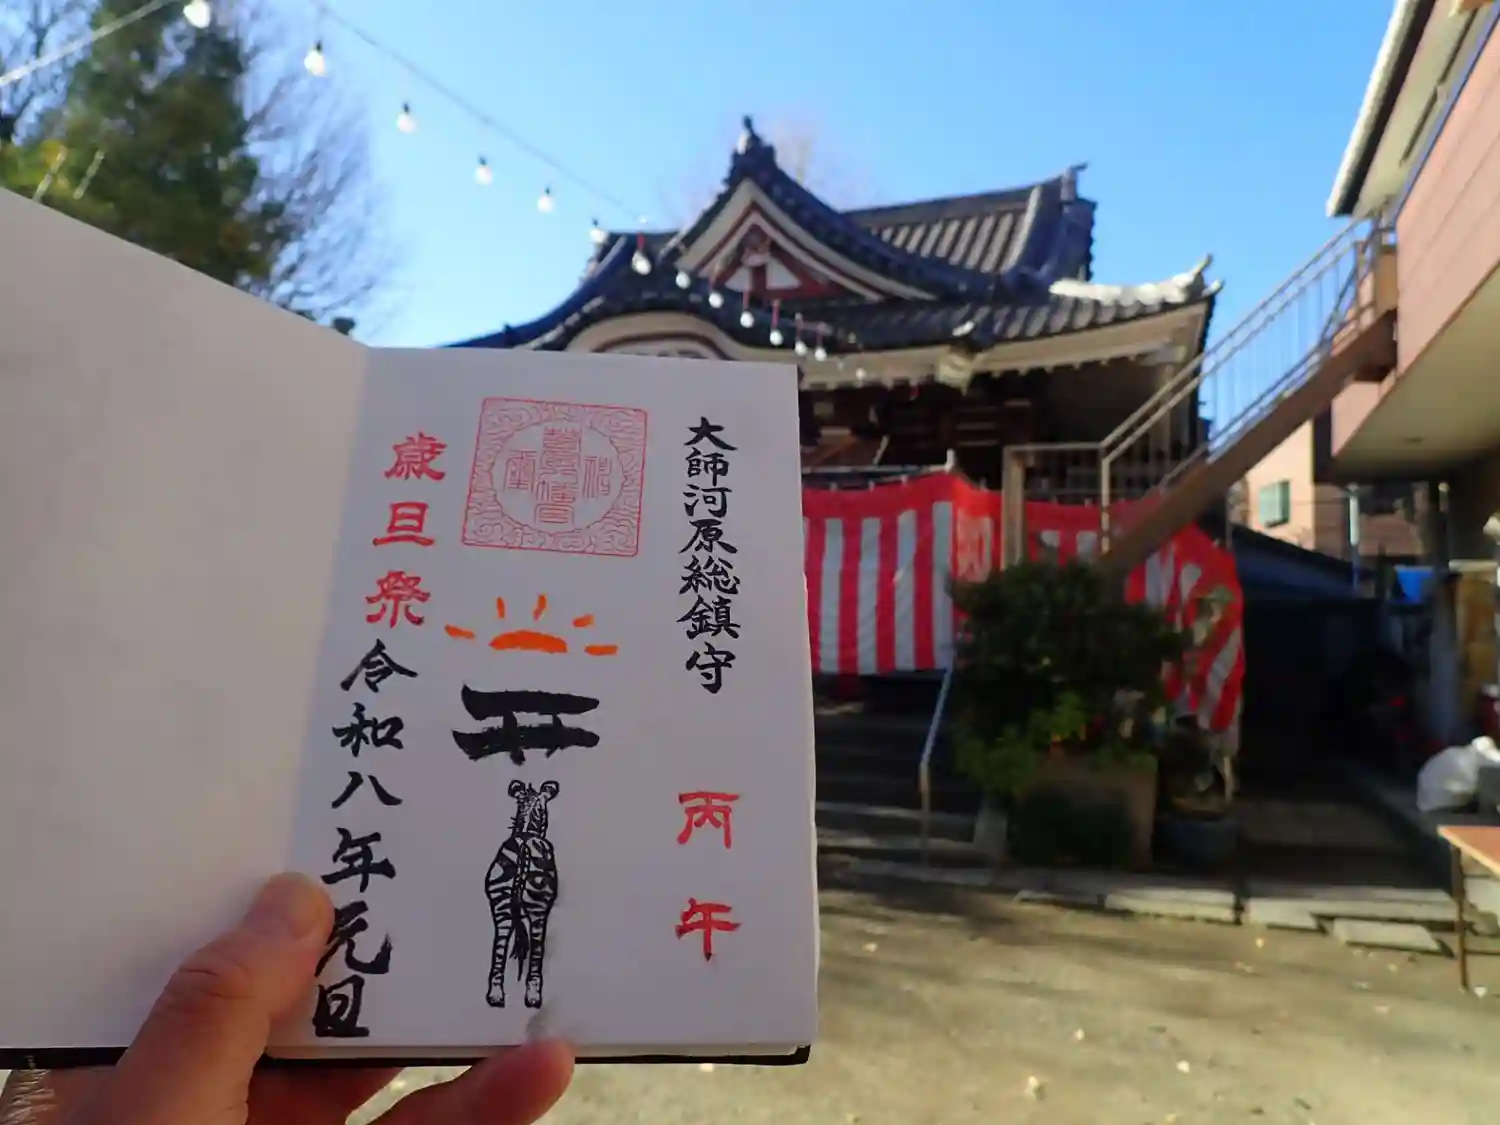 大師河原総鎮守
丙午
歳旦祭
令和八年元旦